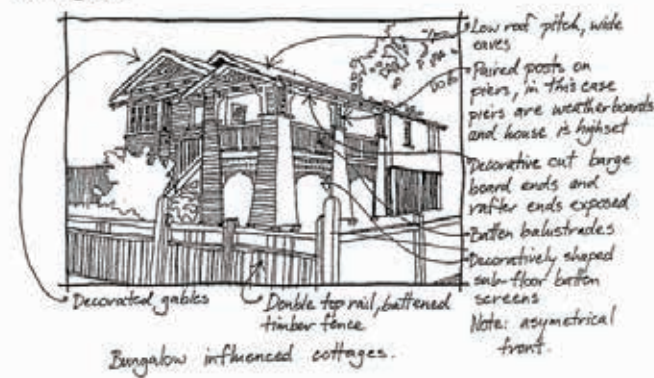 Low roof pitch, wide
eaves
Paired posts on
piers, in this case
piers are weatherboards
and house is highset
Decorative cut barge
board ends and
rafter ends exposed
Batten balustrades
Decoratively shaped
sub-floor batten
screens
Note: asymetrical
front.
Decorated gables
Double top rail, battened
timber fence
Bungalow influenced cottages.